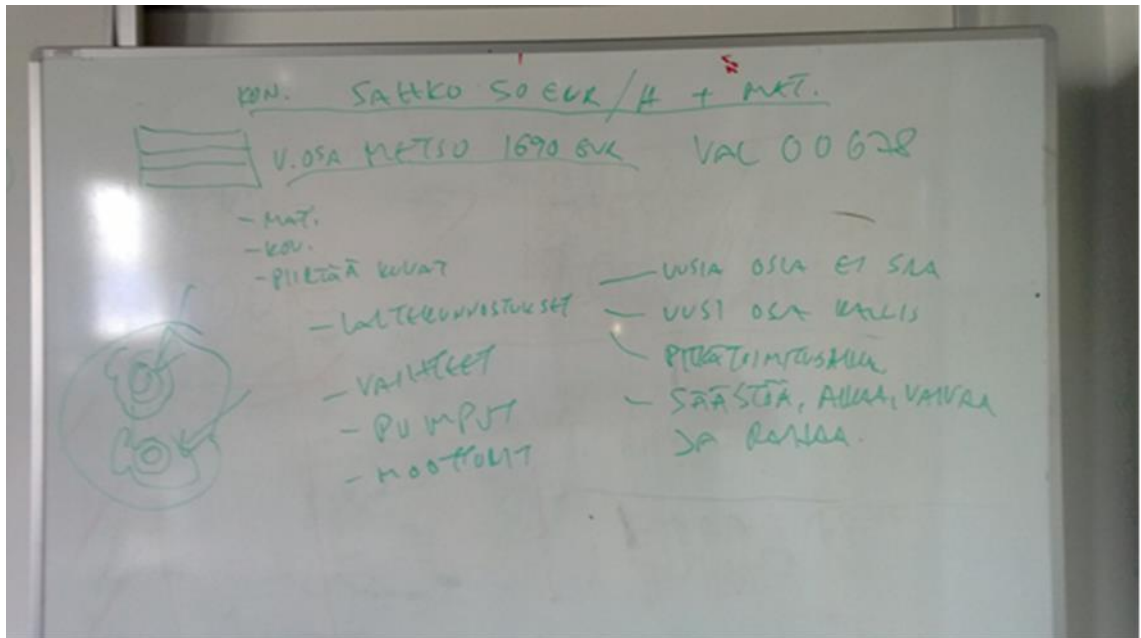 KON. SÄHKÖ 50 EUR/H + MAT.
V. OSA METSO 1690 EUR VAL 00678
- MAT.
- KOV.
- PIIRTÄÄ KUVAT
- LAITEKUNNOSTUKSET
- VAIHTEET
- PUMPUT
- MOOTTORIT
- UUSIA OSIA EI SAA
- UUSI OSA KALLIS
- PITKÄ TOIMITUSAIKA
- SÄÄSTÖÄ, AIKAA, VAIVAA
JA RAHAA.